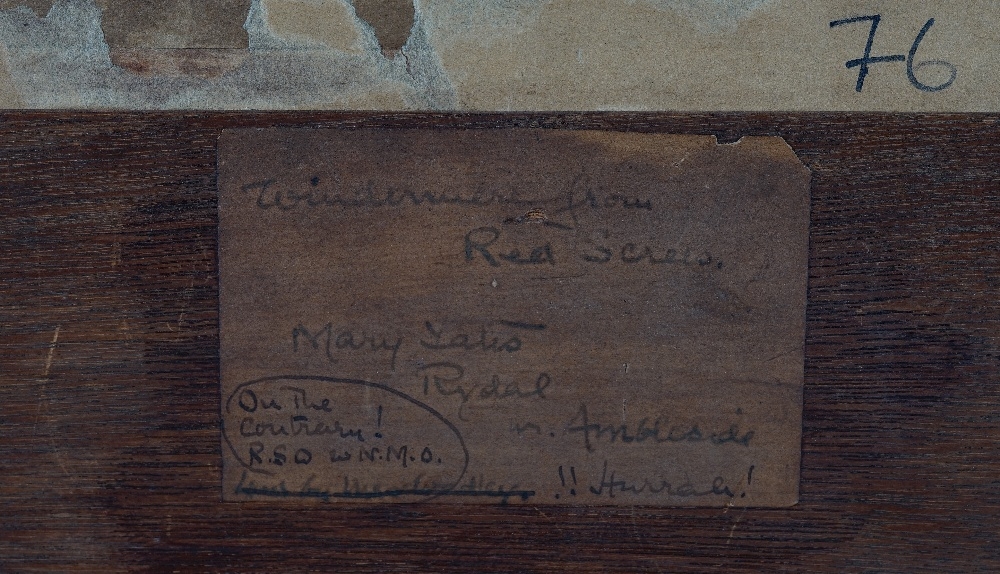 76
Windermere from
Red Screes.
Mary Yates
Rydal
nr. Ambleside
On the
contrary!
R.S.O W.N.M.O.
!! Hurrah!